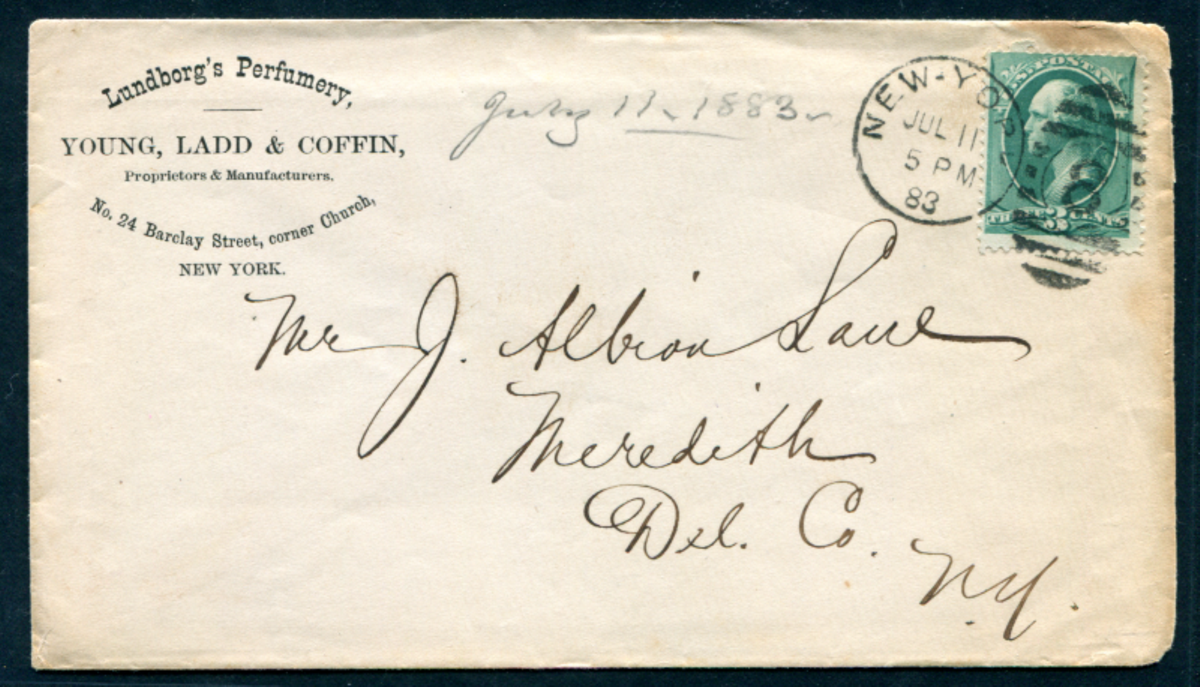 Lundborg's Perfumery,
YOUNG, LADD & COFFIN,
Proprietors & Manufacturers,
No. 24 Barclay Street, corner Church,
NEW YORK.
July 11. 1883
NEW-YO
JUL 11
5 PM
83
U.S. POSTAGE
3
Mr J. Albion Lane
Meredith
Del. Co.
NY.